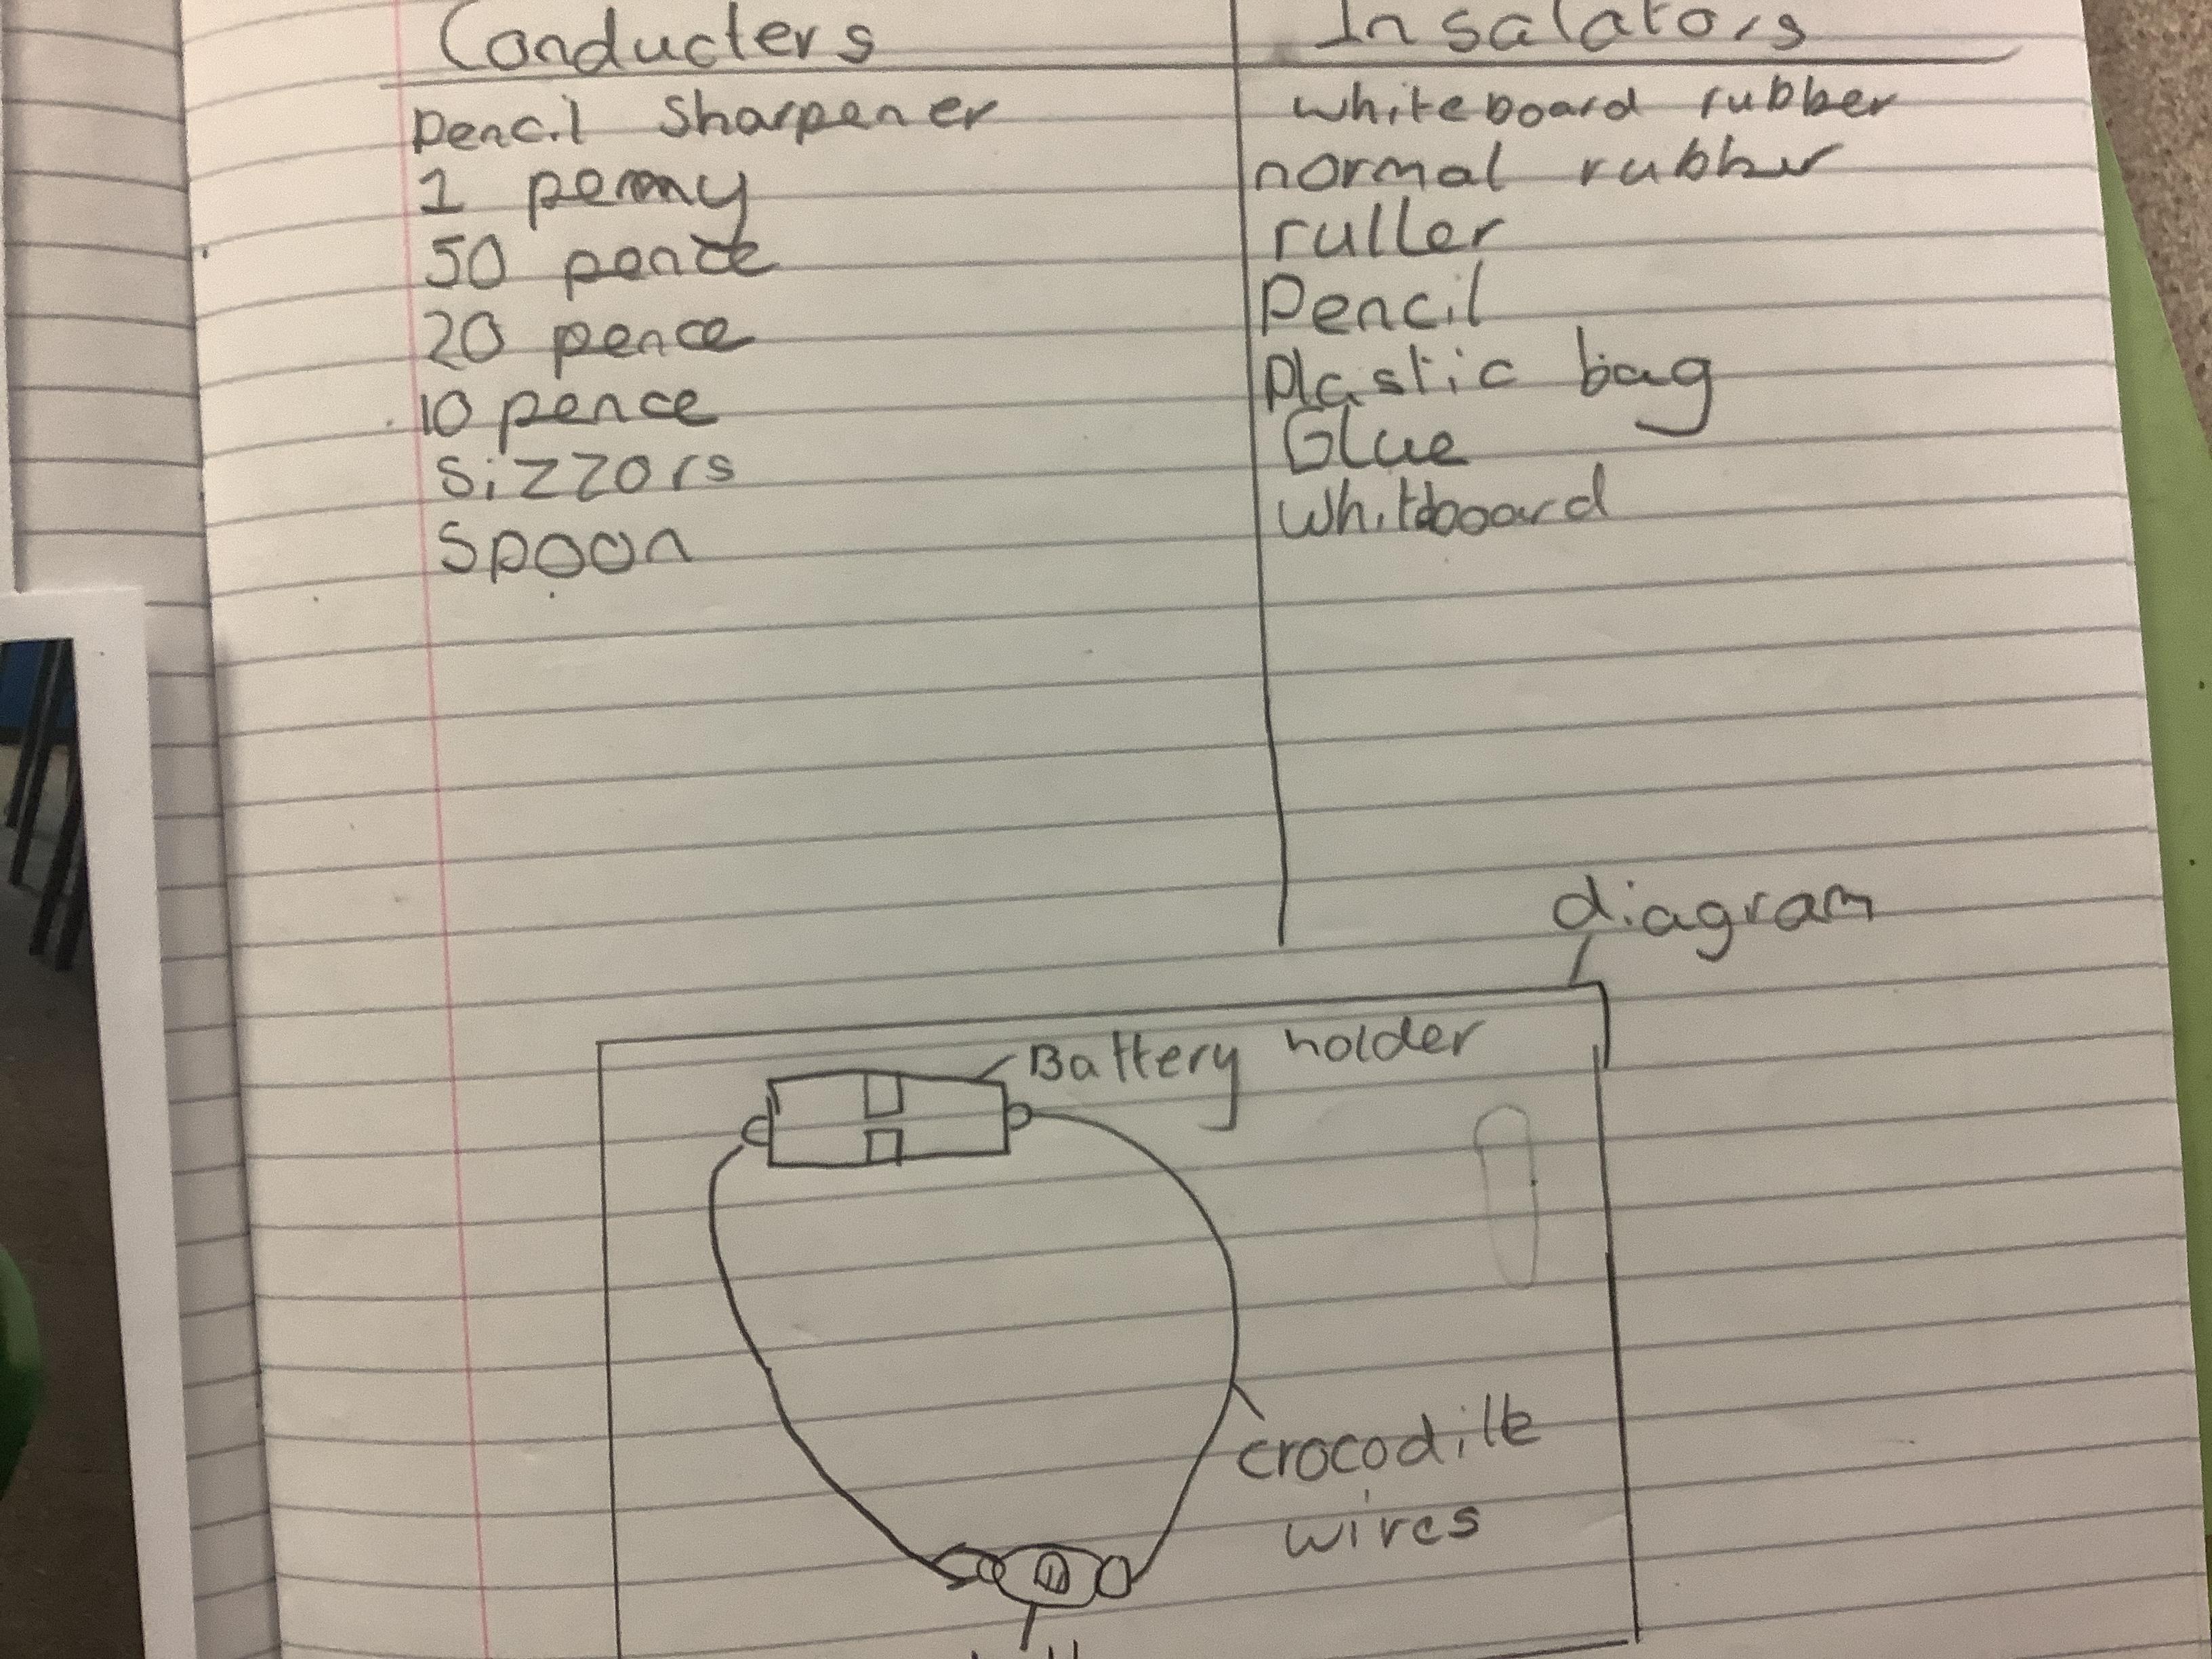 Conducters
Pencil Sharpener
1 penny
50 pence
20 pence
10 pence
Sizzors
Spoon
Insalators
whiteboard rubber
normal rubber
ruller
Pencil
Plastic bag
Glue
Whitboard
diagram
Battery holder
crocodile
wires